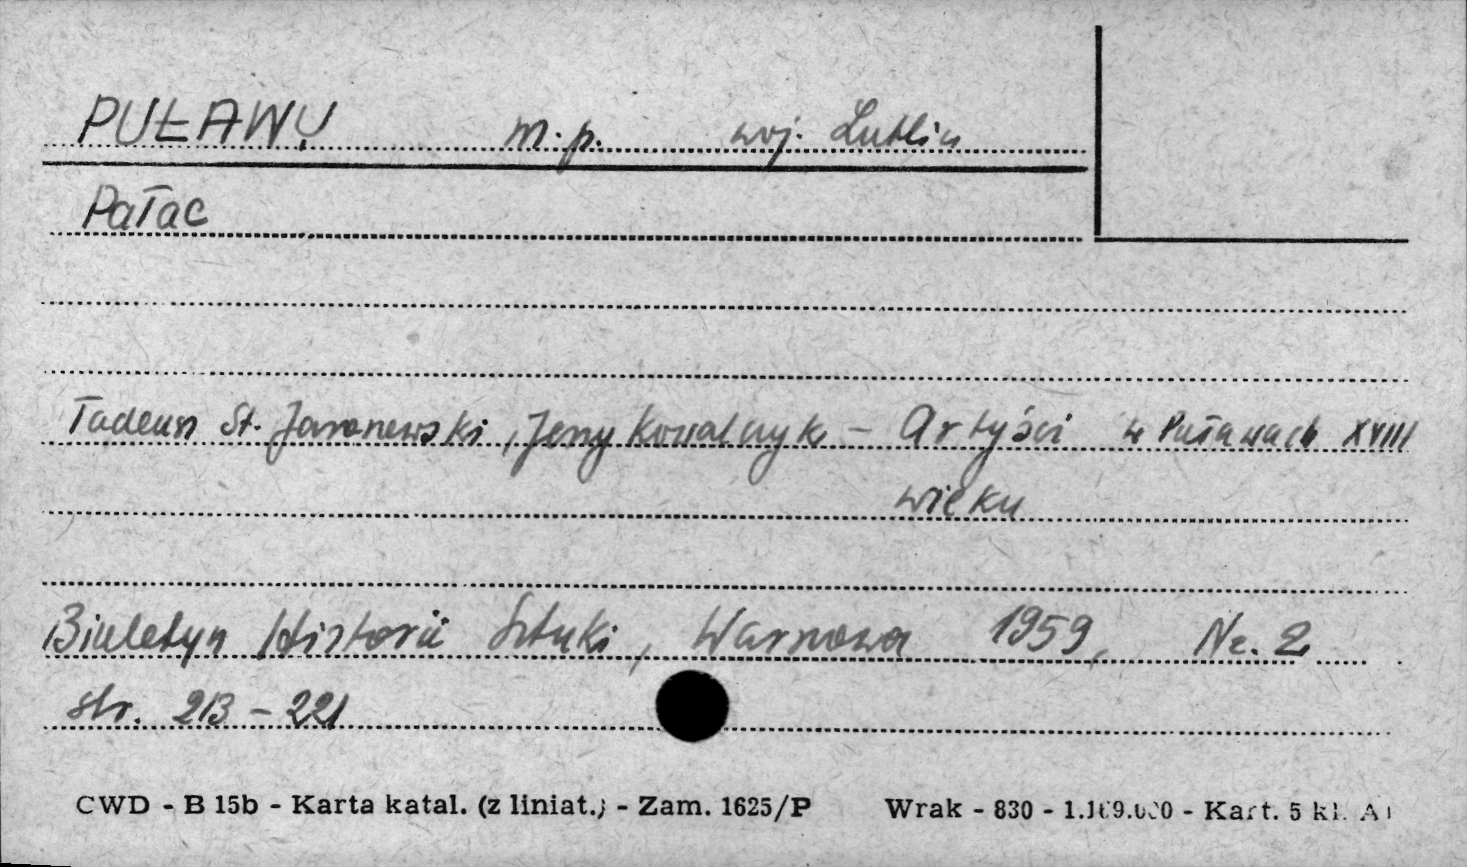 PUŁAWY m.p. woj. Lublin
Pałac
Tadeusz St. Jaroszewski, Jerzy Kowalczyk - Artyści w Puławach XVIII
wieku
Biuletyn Historii Sztuki, Warszawa 1959, Nr. 2
str. 213-221
CWD - B 15b - Karta katal. (z liniat.) - Zam. 1625/P Wrak - 830 - 1.169.000 - Kart. 5 kl.